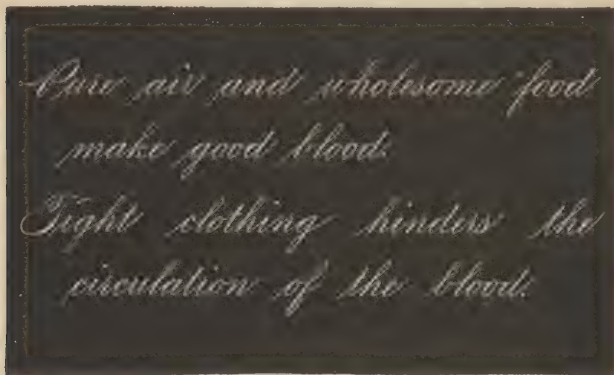 Pure air and wholesome food
make good blood.
Tight clothing hinders the
circulation of the blood.